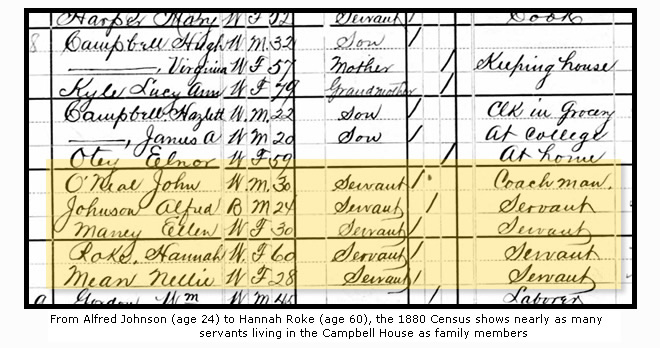 Harper Mary W F 72 Servant / Cook
8 Campbell Hugh W M 32 Son /
———, Virginia W F 57 Mother / Keeping house
Kyle Lucy Ann W F 79 Grandmother /
Campbell Hazlett W M 22 Son / Clk in Grocery
———, James A W M 20 Son / At College
Otey Elnor W F 59 / At home
O'Neal John W M 30 Servant / Coachman.
Johnson Alfred B M 24 Servant / Servant
Ellen W F 30 Servant / Servant
Roke, Hannah W F 60 Servant / Servant
Mean Nellie W F 28 Servant / Servant
Gordon Wm W M 45 Laborer
From Alfred Johnson (age 24) to Hannah Roke (age 60), the 1880 Census shows nearly as many
servants living in the Campbell House as family members